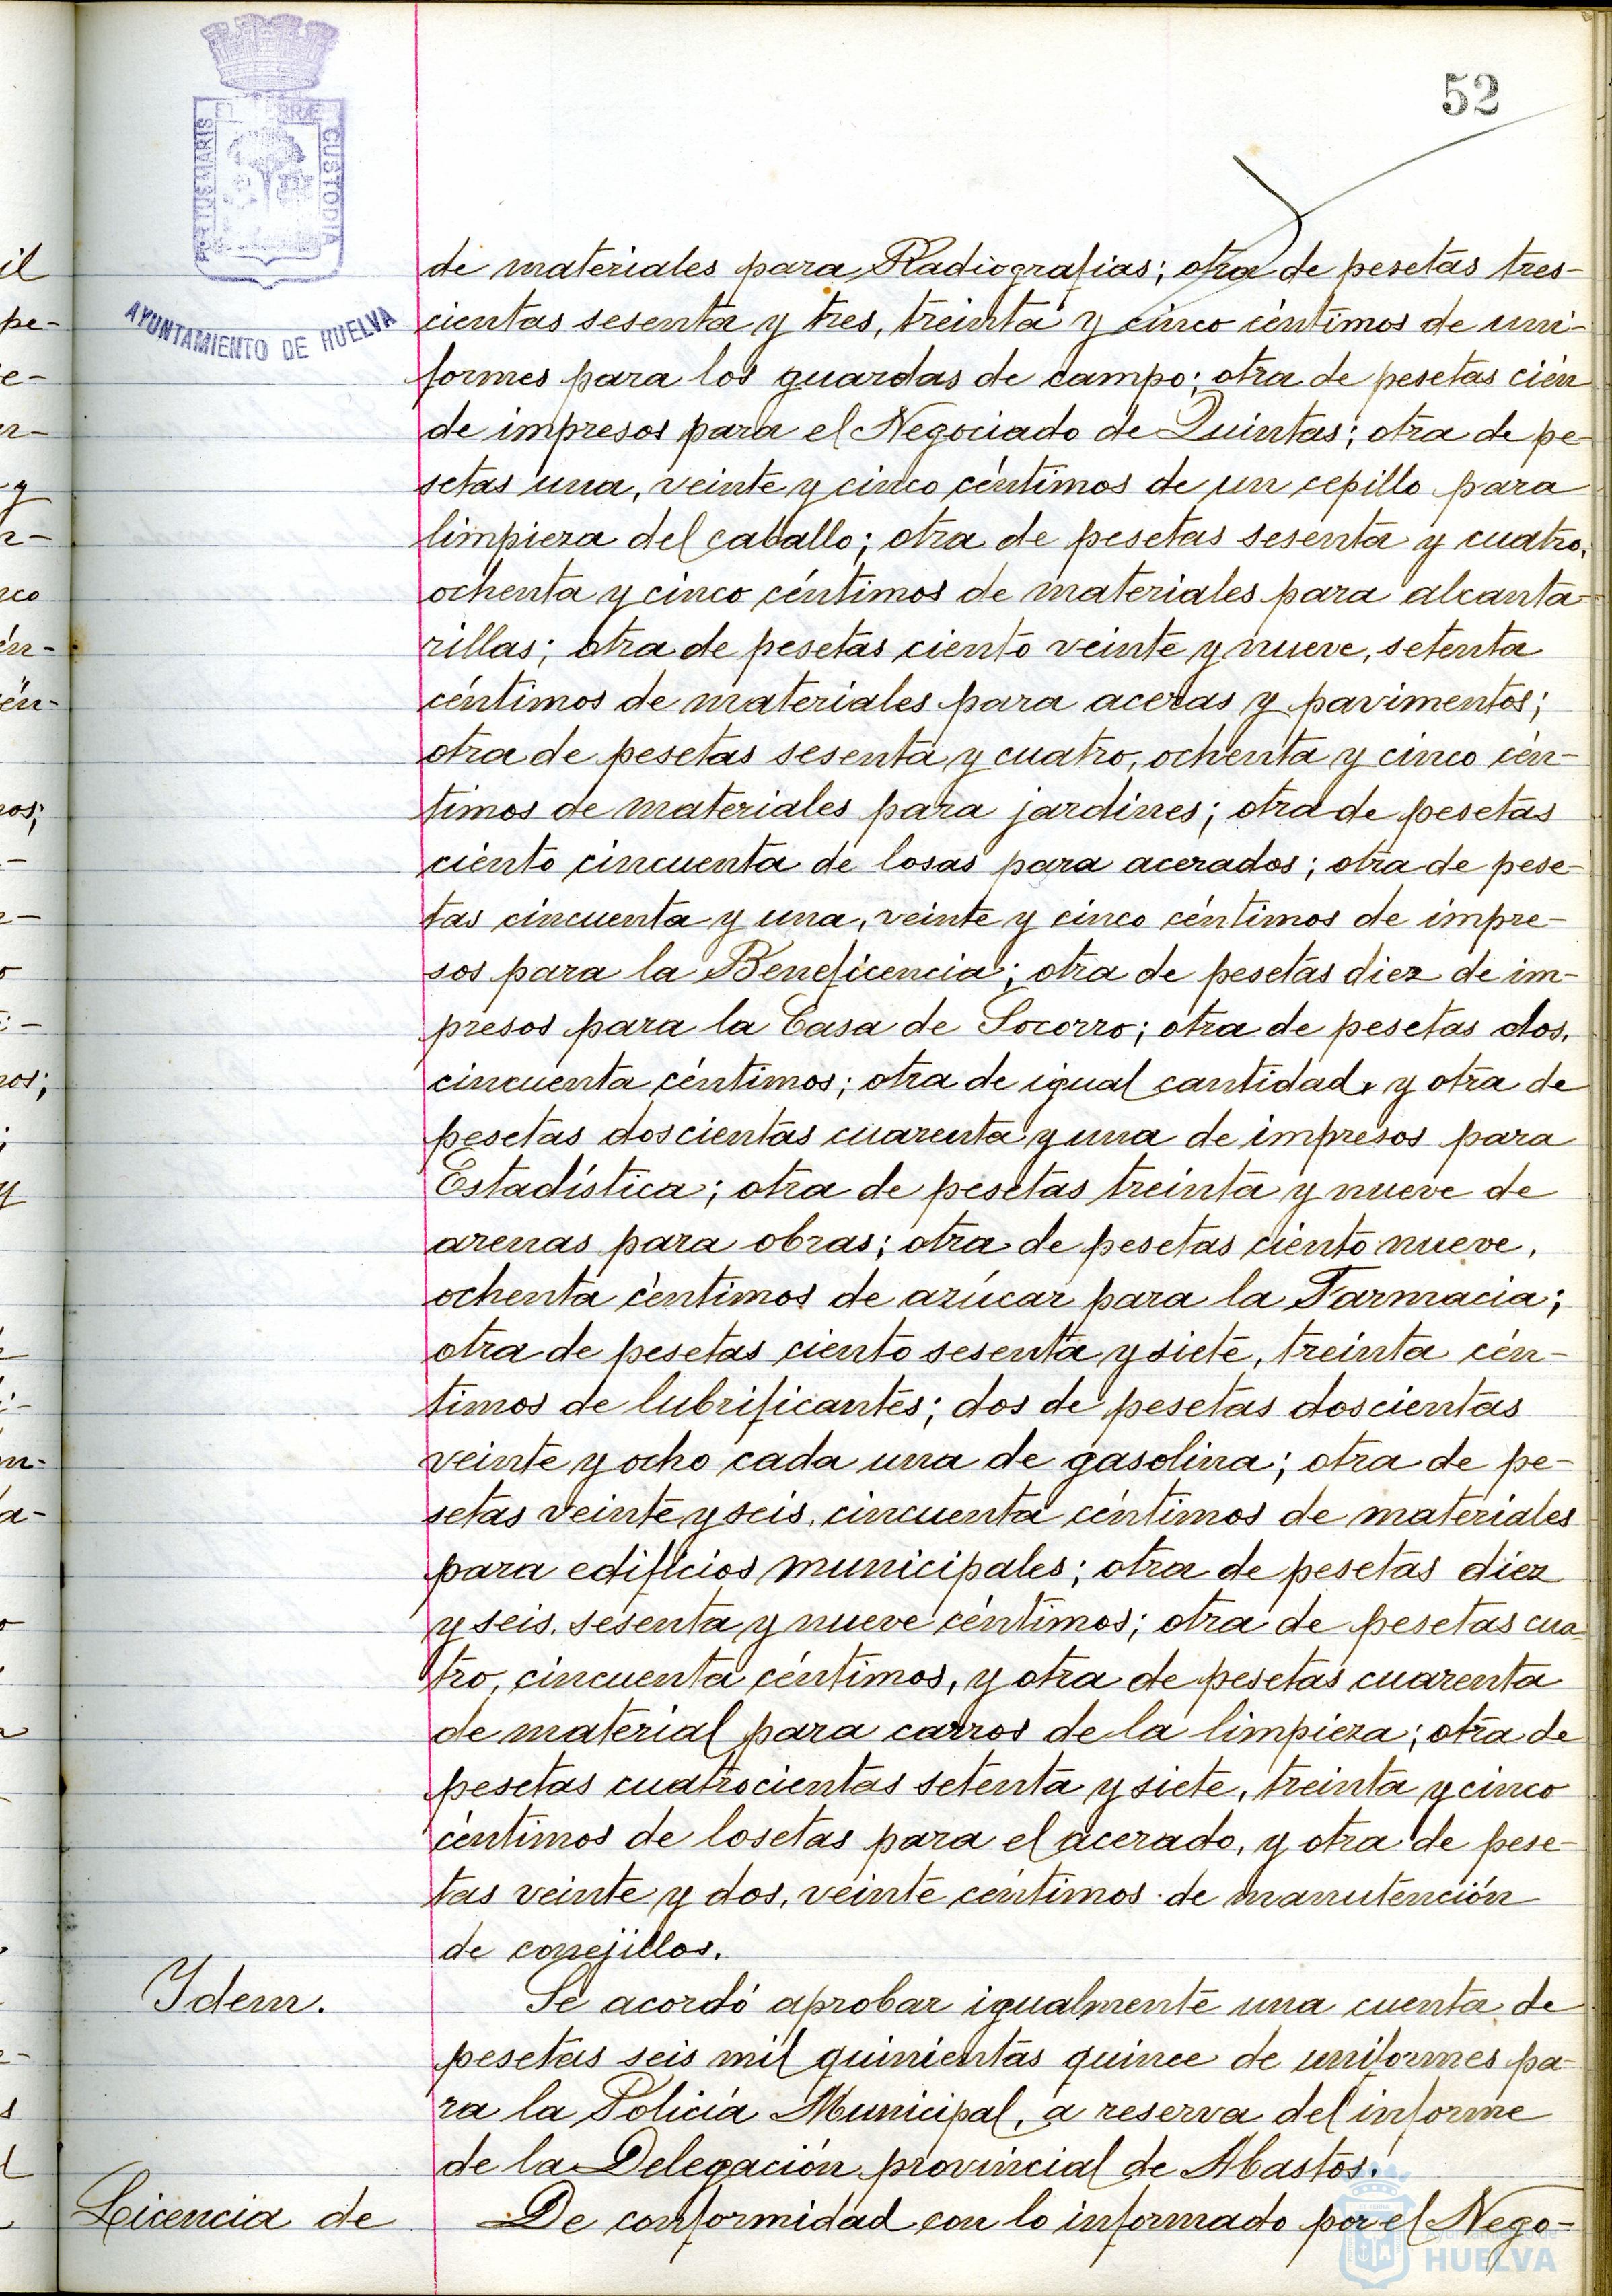 52
PORTUS MARIS
TERRAE
CUSTODIA
AYUNTAMIENTO DE HUELVA
de materiales para Radiografias; otra de pesetas tres-
cientas sesenta y tres, treinta y cinco céntimos de uni-
formes para los guardas de campo; otra de pesetas cién
de impresos para el Negociado de Quintas; otra de pe-
setas una, veinte y cinco céntimos de un cepillo para
limpieza del caballo; otra de pesetas sesenta y cuatro,
ochenta y cinco céntimos de materiales para alcanta-
rillas; otra de pesetas ciento veinte y nueve, setenta
céntimos de materiales para aceras y pavimentos;
otra de pesetas sesenta y cuatro, ochenta y cinco cén-
timos de materiales para jardines; otra de pesetas
ciento cincuenta de losas para acerados; otra de pese-
tas cincuenta y una, veinte y cinco céntimos de impre-
sos para la Beneficencia; otra de pesetas diez de im-
presos para la Casa de Socorro; otra de pesetas dos,
cincuenta céntimos; otra de igual cantidad, y otra de
pesetas doscientas cuarenta y una de impresos para
Estadística; otra de pesetas treinta y nueve de
arenas para obras; otra de pesetas ciento nueve,
ochenta céntimos de azúcar para la Farmacia;
otra de pesetas ciento sesenta y siete, treinta cén-
timos de lubrificantes; dos de pesetas doscientas
veinte y ocho cada una de gasolina; otra de pe-
setas veinte y seis, cincuenta céntimos de materiales
para edificios municipales; otra de pesetas diez
y seis, sesenta y nueve céntimos; otra de pesetas cua-
tro, cincuenta céntimos, y otra de pesetas cuarenta
de material para carros de la limpieza; otra de
pesetas cuatrocientas setenta y siete, treinta y cinco
céntimos de losetas para el acerado, y otra de pese-
tas veinte y dos, veinte céntimos de manutención
de conejillos.
Idem. Se acordó aprobar igualmente una cuenta de
pesetas seis mil quinientas quince de uniformes pa-
ra la Policía Municipal, a reserva del informe
de la Delegación provincial de Abastos.
Licencia de De conformidad con lo informado por el Nego-
HUELVA